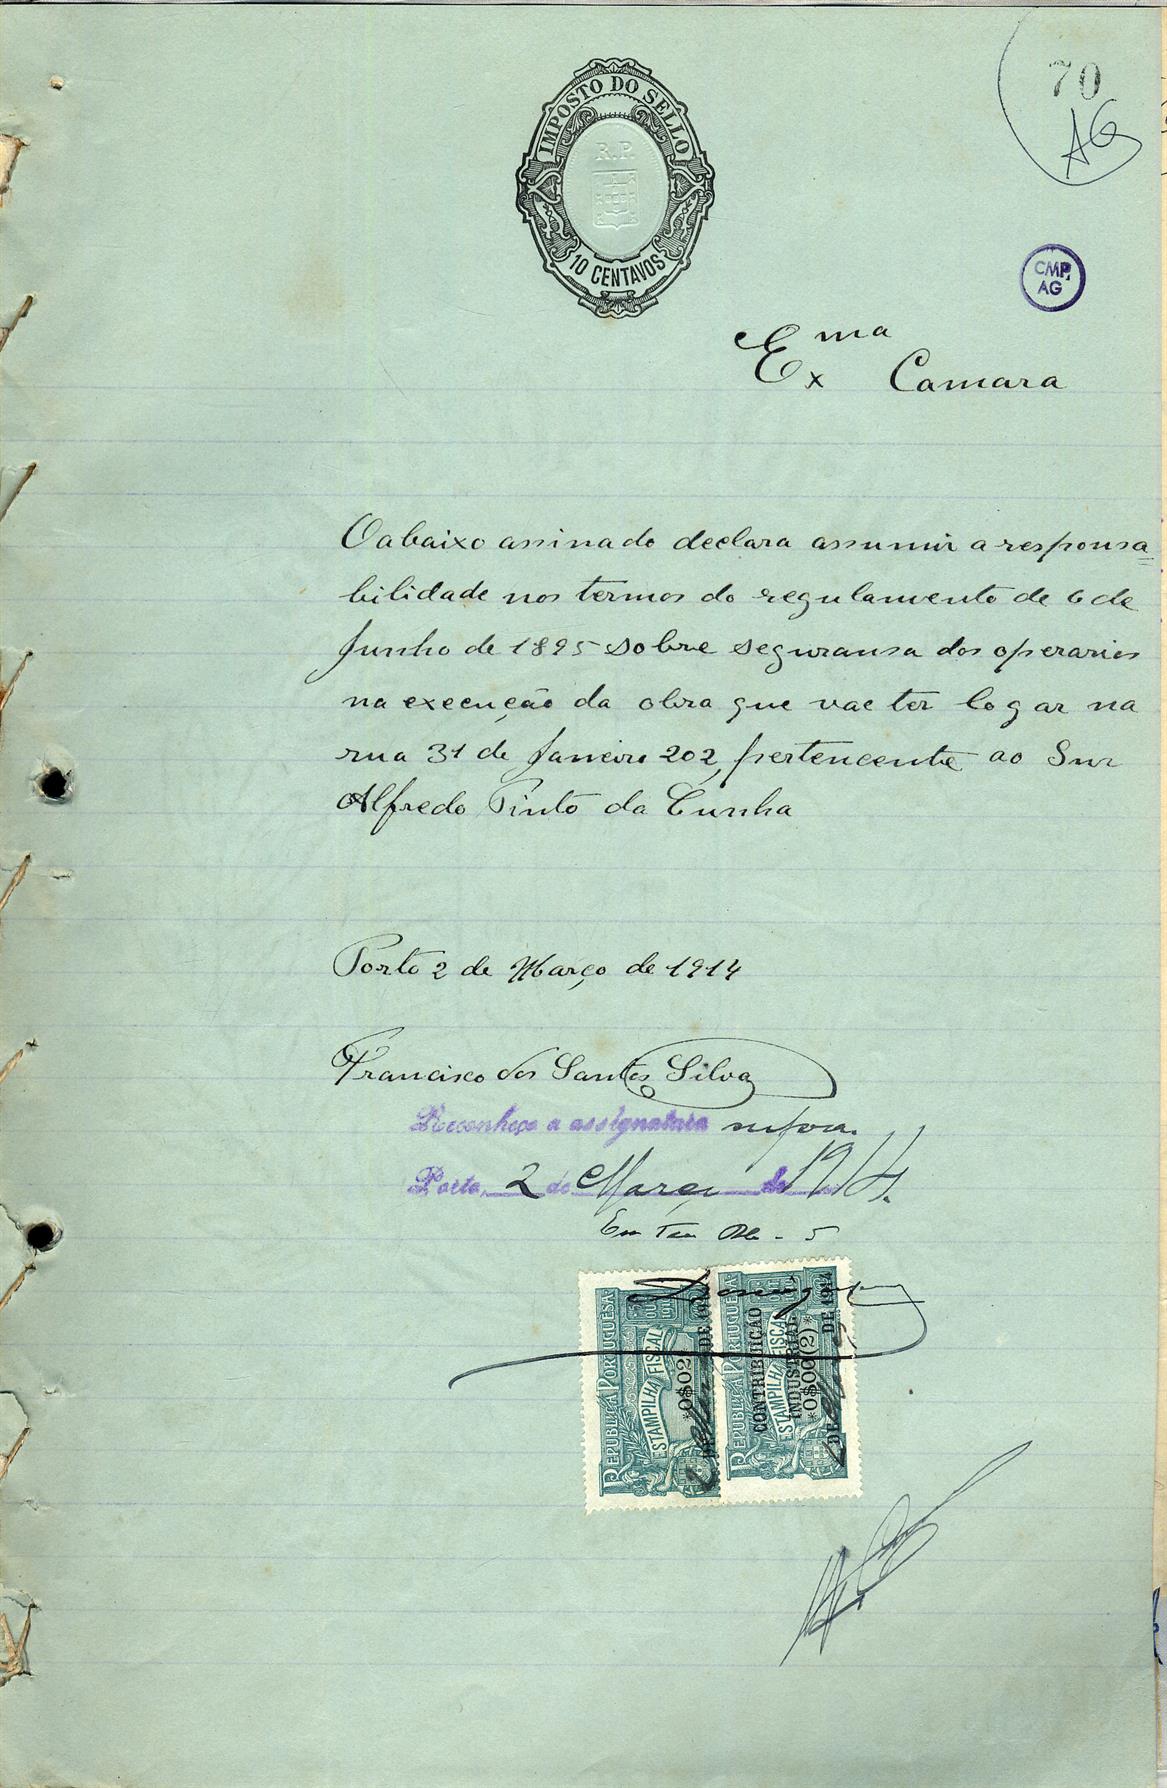 70
AG
IMPOSTO DO SELLO
R.P.
10 CENTAVOS
CMP.
AG
Exma Camara
O abaixo assinado declara assumir a responsa=
bilidade nos termos do regulamento de 6 de
Junho de 1895 sobre seguransa dos operarios
na execução da obra que vae ter logar na
rua 31 de Janeiro 202, pertencente ao Snr
Alfredo Pinto da Cunha
Porto 2 de Março de 1914
Francisco dos Santos Silva
Reconheço a assignatura supra.
Porto, 2 de Março de 1914.
REPUBLICA PORTUGUESA
ESTAMPILHA FISCAL
*0$02*
REPUBLICA PORTUGUESA
ESTAMPILHA FISCAL
CONTRIBUIÇÃO
INDUSTRIAL
*0$00(2)*